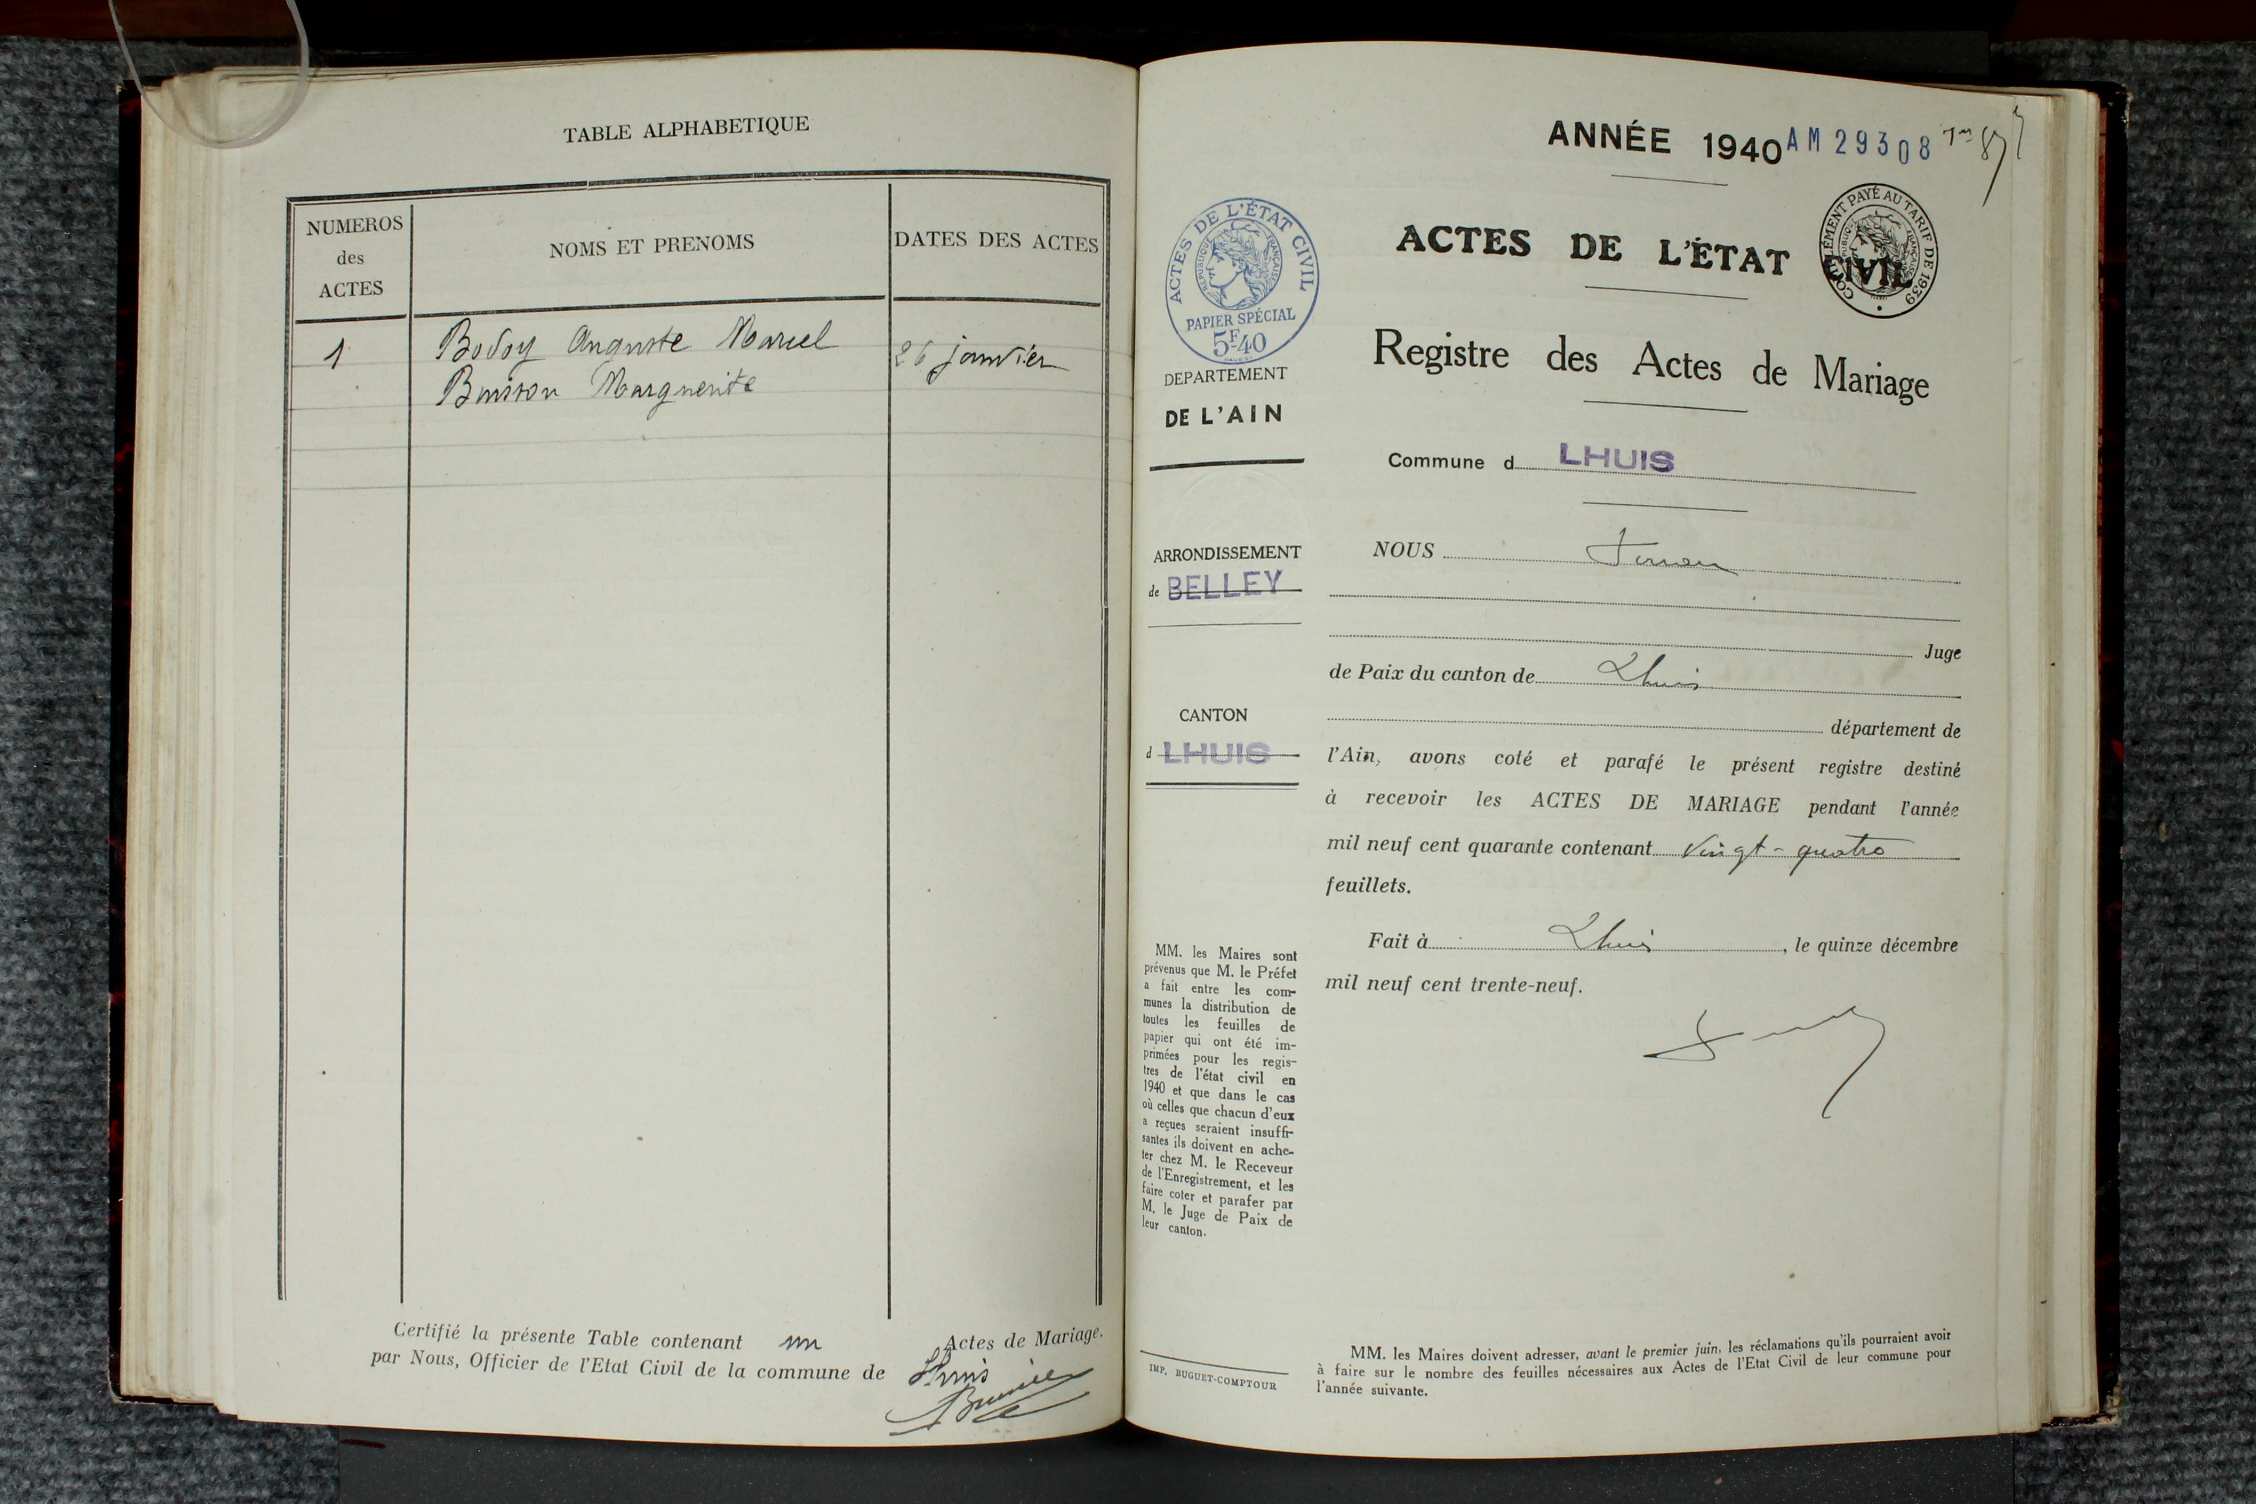 TABLE ALPHABETIQUE
NUMEROS
des
ACTES
NOMS ET PRENOMS
DATES DES ACTES
1
Bodoy Auguste Marcel
26 janvier
Buisson Marguerite
Certifié la présente Table contenant un Actes de Mariage.
par Nous, Officier de l'Etat Civil de la commune de Lhuis
ANNÉE 1940
AM 29308
ACTES DE L'ÉTAT CIVIL
RÉPUBLIQUE FRANÇAISE
PAPIER SPÉCIAL
5F40
COMPLÉMENT PAYÉ AU TARIF DE 1939
RÉPUBLIQUE FRANÇAISE
ACTES DE L'ÉTAT CIVIL
Registre des Actes de Mariage
DEPARTEMENT
DE L'AIN
Commune d LHUIS
ARRONDISSEMENT
de BELLEY
CANTON
d LHUIS
NOUS
Juge
de Paix du canton de Lhuis
département de
l'Ain, avons coté et parafé le présent registre destiné
à recevoir les ACTES DE MARIAGE pendant l'année
mil neuf cent quarante contenant vingt-quatre
feuillets.
Fait à Lhuis, le quinze décembre
mil neuf cent trente-neuf.
MM. les Maires sont
prévenus que M. le Préfet
a fait entre les com-
munes la distribution de
toutes les feuilles de
papier qui ont été im-
primées pour les regis-
tres de l'état civil en
1940 et que dans le cas
où celles que chacun d'eux
a reçues seraient insuffi-
santes ils doivent en ache-
ter chez M. le Receveur
de l'Enregistrement, et les
faire coter et parafer par
M. le Juge de Paix de
leur canton.
IMP. BUGUET-COMPTOUR
MM. les Maires doivent adresser, avant le premier juin, les réclamations qu'ils pourraient avoir
à faire sur le nombre des feuilles nécessaires aux Actes de l'Etat Civil de leur commune pour
l'année suivante.